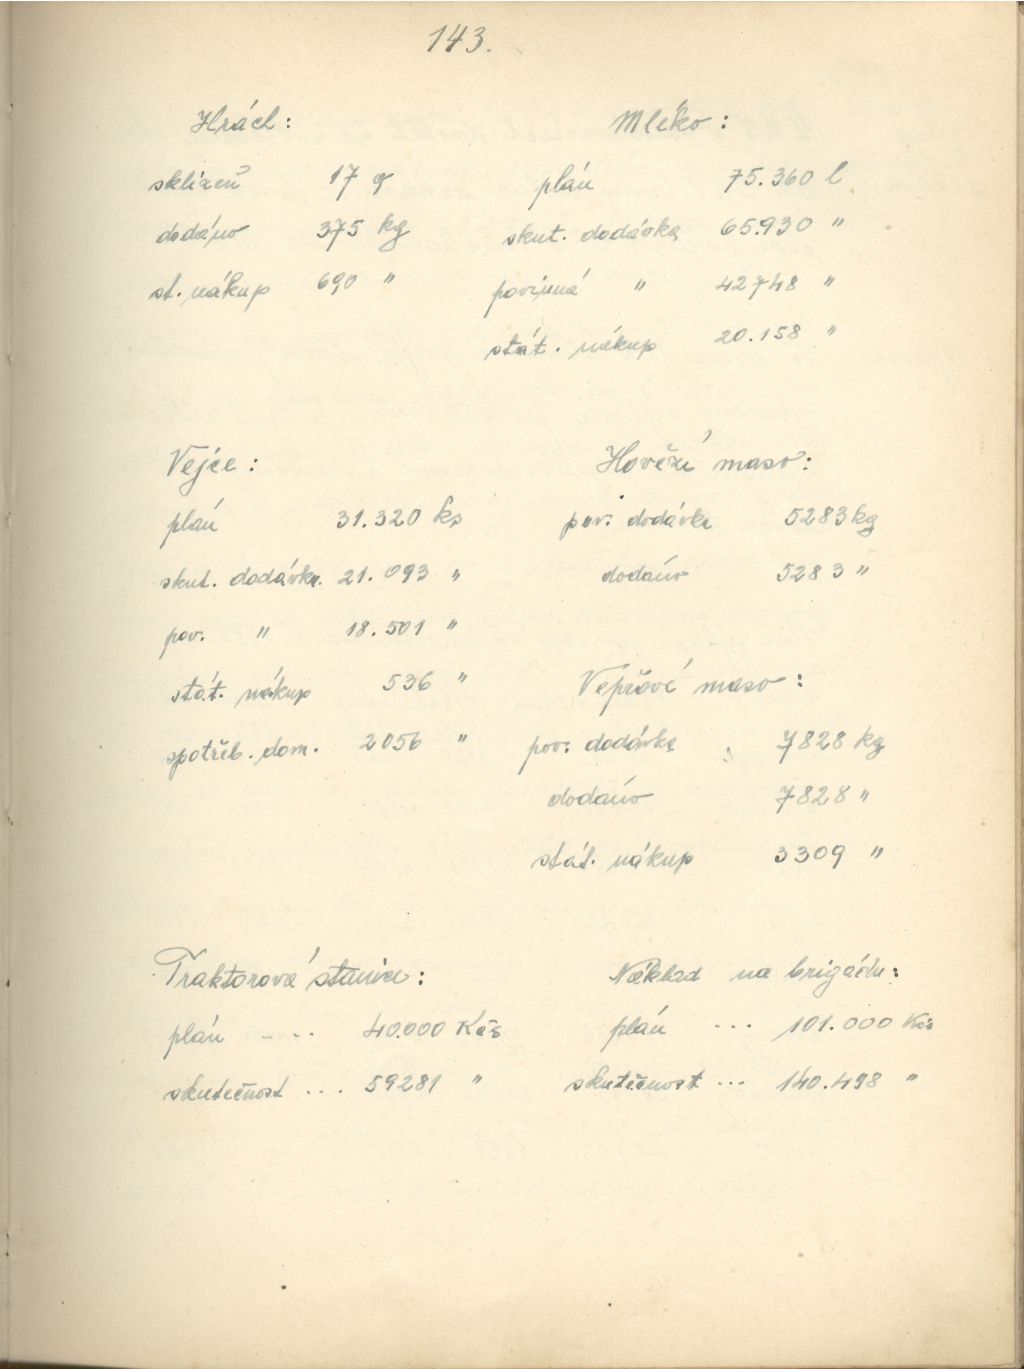 143.
Hrách:
sklizeň 17 q
dodáno 375 kg
st. nákup 690 "
Mléko:
plán 75.360 l
skut. dodávka 65.930 "
povinná " 42748 "
stát. nákup 20.158 "
Vejce:
plán 31.320 ks
skut. dodávka 21.093 "
pov. " 18.501 "
stát. nákup 536 "
spotřeb. dom. 2056 "
Hovězí maso:
pov. dodávka 5283 kg
dodáno 5283 "
Vepřové maso:
pov. dodávka 7828 kg
dodáno 7828 "
stát. nákup 3309 "
Traktorová stanice:
plán ... 40.000 Kčs
skutečnost ... 59281 "
Náklad na brigádu:
plán ... 101.000 Kčs
skutečnost ... 140.498 "